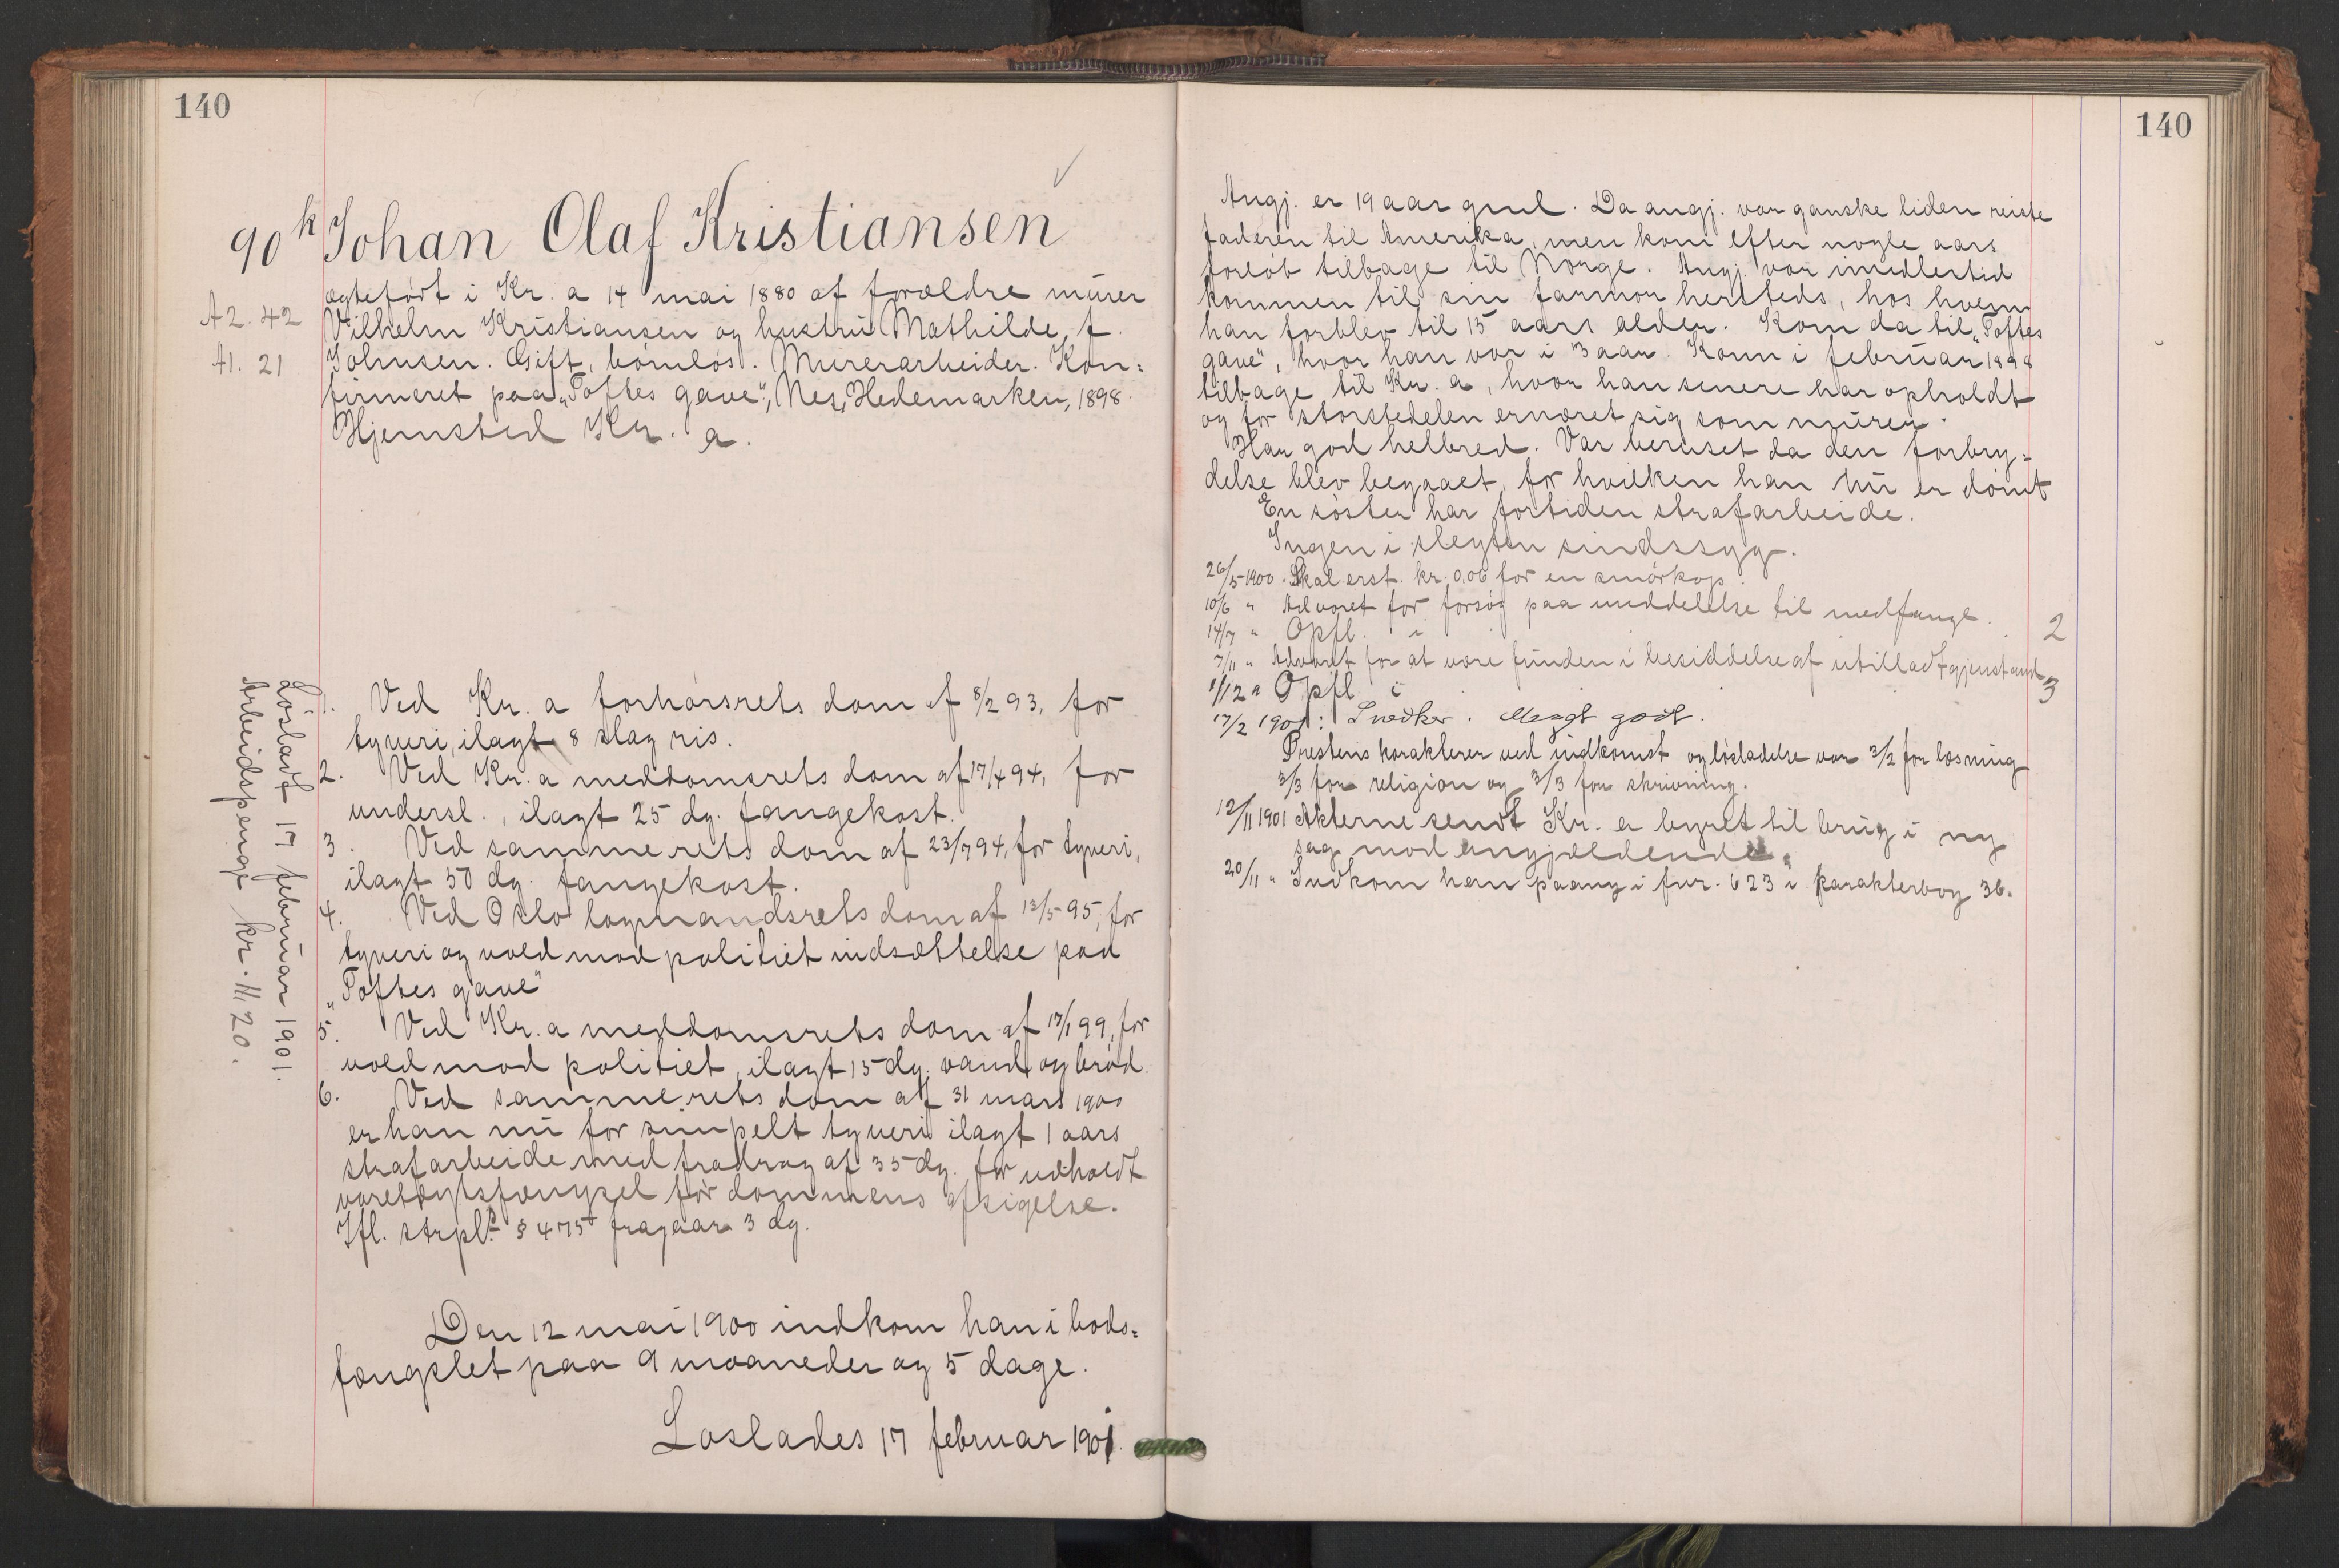 140
90k Johan Olaf Kristiansen
ægtefødt i Kr. a 14 mai 1880 af forældre murer
A2. 42 Vilhelm Kristiansen og hustru Mathilde, f.
A1. 21 Johnsen. Gift, børnløs. Murerarbeider. Kon=
firmeret paa „Toftes gave", Nes, Hedemarken, 1898.
Hjemsted Kr. a.
1. Ved Kr. a forhørsrets dom af 8/2 93, for
tyveri, ilagt 8 slag ris.
2. Ved Kr. a meddomsrets dom af 17/4 94, for
undersl., ilagt 25 dg. fangekost.
3. Ved samme rets dom af 23/7 94, for tyveri,
ilagt 50 dg. fangekost.
4. Ved Oslo lagmandsrets dom af 13/5 95, for
tyveri og vold mod politiet indsættelse paa
„Toftes gave"
5. Ved Kr. a meddomsrets dom af 17/1 99, for
vold mod politiet, ilagt 15 dg. vand og brød.
6. Ved samme rets dom af 31 mars 1900
er han nu for simpelt tyveri ilagt 1 aars
strafarbeide med fradrag af 35 dg. for udholdt
varetægtsfængsel før dommens afsigelse.
Ifl. strpl. § 475 fragaar 3 dg.
Løsladt 17 februar 1901.
Arbeidspenge kr. 11,20.
Den 12 mai 1900 indkom han i bods=
fængslet paa 9 maaneder og 5 dage.
Løslades 17 februar 1901.
140
Angj. er 19 aar gml. Da angj. var ganske liden reiste
faderen til Amerika, men kom efter nogle aars
forløb tilbage til Norge. Angj. var imidlertid
kommen til sin farmor hersteds, hos hvem
han forblev til 15 aars alder. Kom da til „Toftes
gave", hvor han var i 3 aar. Kom i februar 1898
tilbage til Kr. a, hvor han senere har opholdt
og for størstedelen ernæret sig som murer.
Har god helbred. Var beruset da den forbry=
delse blev begaaet, for hvilken han nu er dømt
En søster har fortiden strafarbeide.
Ingen i slegten sindssyg.
26/5 1900. Skal erst. kr. 0,06 for en smørkop.
10/6 " Advaret for forsøg paa meddelelse til medfange.
14/7 " Opfl. i 2
7/11 " Advaret for at være funden i besiddelse af utilladt gjenstand
1/12 " Opfl. i 3
17/2 1901: Snedker. Meget godt.
Prestens karakterer ved indkomst og løsladelse var 3/2 for læsning
3/3 for religion og 3/3 for skrivning.
12/11 1901 Akterne sendt Kr. a byret til brug i ny
sag mod angjældende.
20/11 " Indkom han paany i fnr. 623 i karakterbog 36.